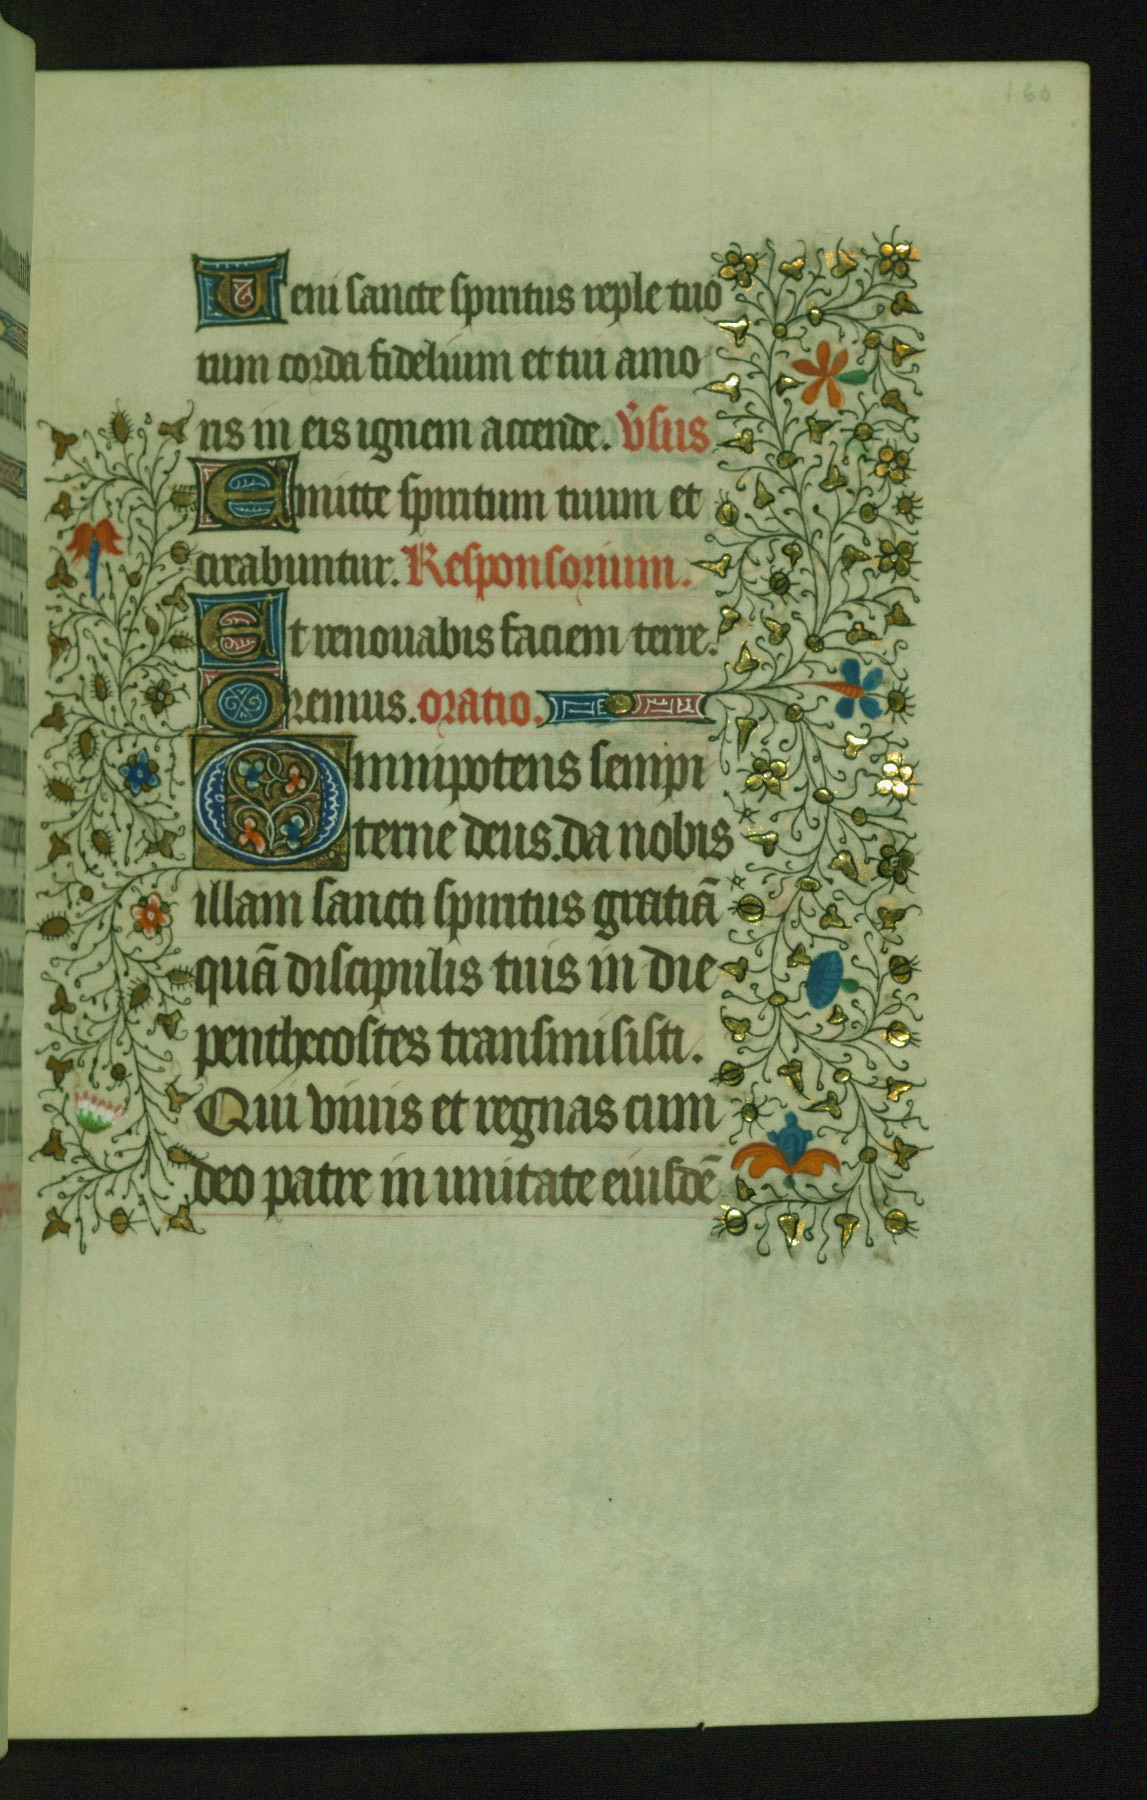 160
Veni sancte spiritus reple tuo
rum corda fidelium et tui amo
ris in eis ignem accende. v̉sus
Emitte spiritum tuum et
creabuntur. Responsorium.
Et renouabis faciem terre.
Oremus. oratio.
Omnipotens sempi
terne deus. da nobis
illam sancti spiritus gratiā
quā discipulis tuis in die
penthecostes transmisisti.
Qui viuis et regnas cum
deo patre in unitate eiusdē